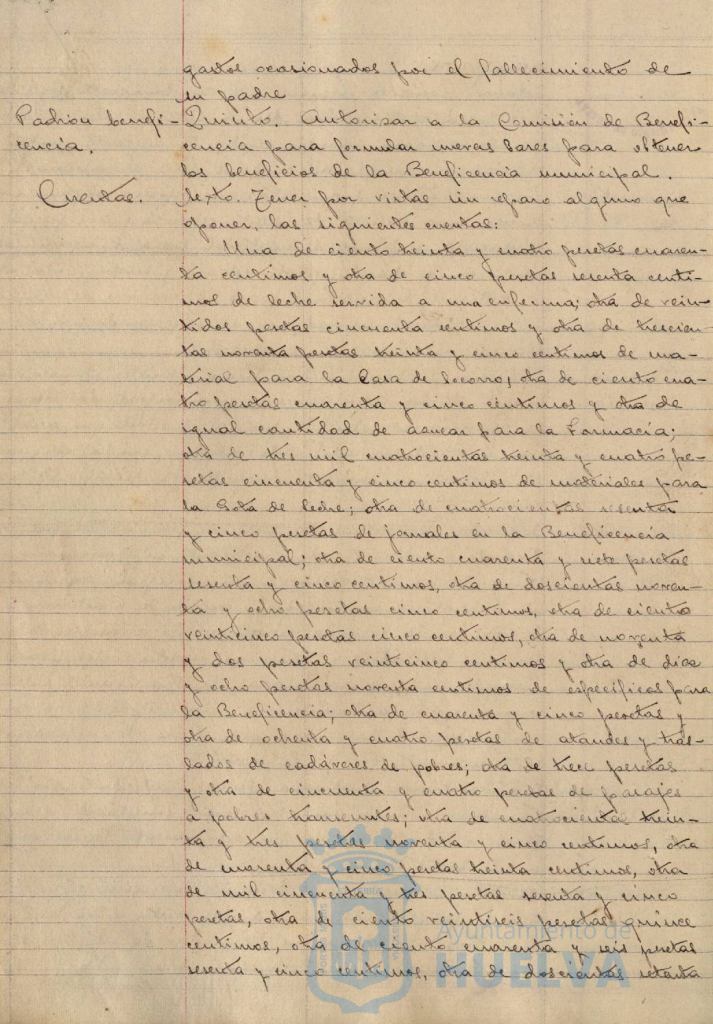 gastos ocasionados por el fallecimiento de
su padre
Padrón benefi-
cencia.
Quinto. Autorizar a la Comisión de Benefi-
cencia para formular nuevas bases para obtener
los beneficios de la Beneficencia municipal.
Cuentas.
Sexto. Tener por vistas sin reparo alguno que
oponer, las siguientes cuentas:
Una de ciento treinta y cuatro pesetas cuaren-
ta centimos y otra de cinco pesetas sesenta centi-
mos de leche servida a una enferma; otra de vein-
tidos pesetas cincuenta centimos y otra de trescien-
tas noventa pesetas treinta y cinco centimos de ma-
terial para la Casa de Socorro; otra de ciento cua-
tro pesetas cuarenta y cinco centimos y otra de
igual cantidad de azucar para la Farmacia;
otra de tres mil cuatrocientas treinta y cuatro pe-
setas cincuenta y cinco centimos de materiales para
la Gota de leche; otra de cuatrocientas sesenta
y cinco pesetas de jornales en la Beneficencia
municipal; otra de ciento cuarenta y siete pesetas
sesenta y cinco centimos, otra de doscientas noven-
ta y ocho pesetas cinco centimos, otra de ciento
veinticinco pesetas cinco centimos, otra de noventa
y dos pesetas veinticinco centimos y otra de diez
y ocho pesetas noventa centimos de especificos para
la Beneficencia; otra de cuarenta y cinco pesetas y
otra de ochenta y cuatro pesetas de ataudes y tras-
lados de cadáveres de pobres; otra de trece pesetas
y otra de cincuenta y cuatro pesetas de pasajes
a pobres transeuntes; otra de cuatrocientas trein-
ta y tres pesetas noventa y cinco centimos, otra
de cuarenta y cinco pesetas treinta centimos, otra
de mil cincuenta y tres pesetas sesenta y cinco
pesetas, otra de ciento veintiseis pesetas quince
centimos, otra de ciento cuarenta y seis pesetas
sesenta y cinco centimos, otra de doscientas setenta
Ayuntamiento de
HUELVA